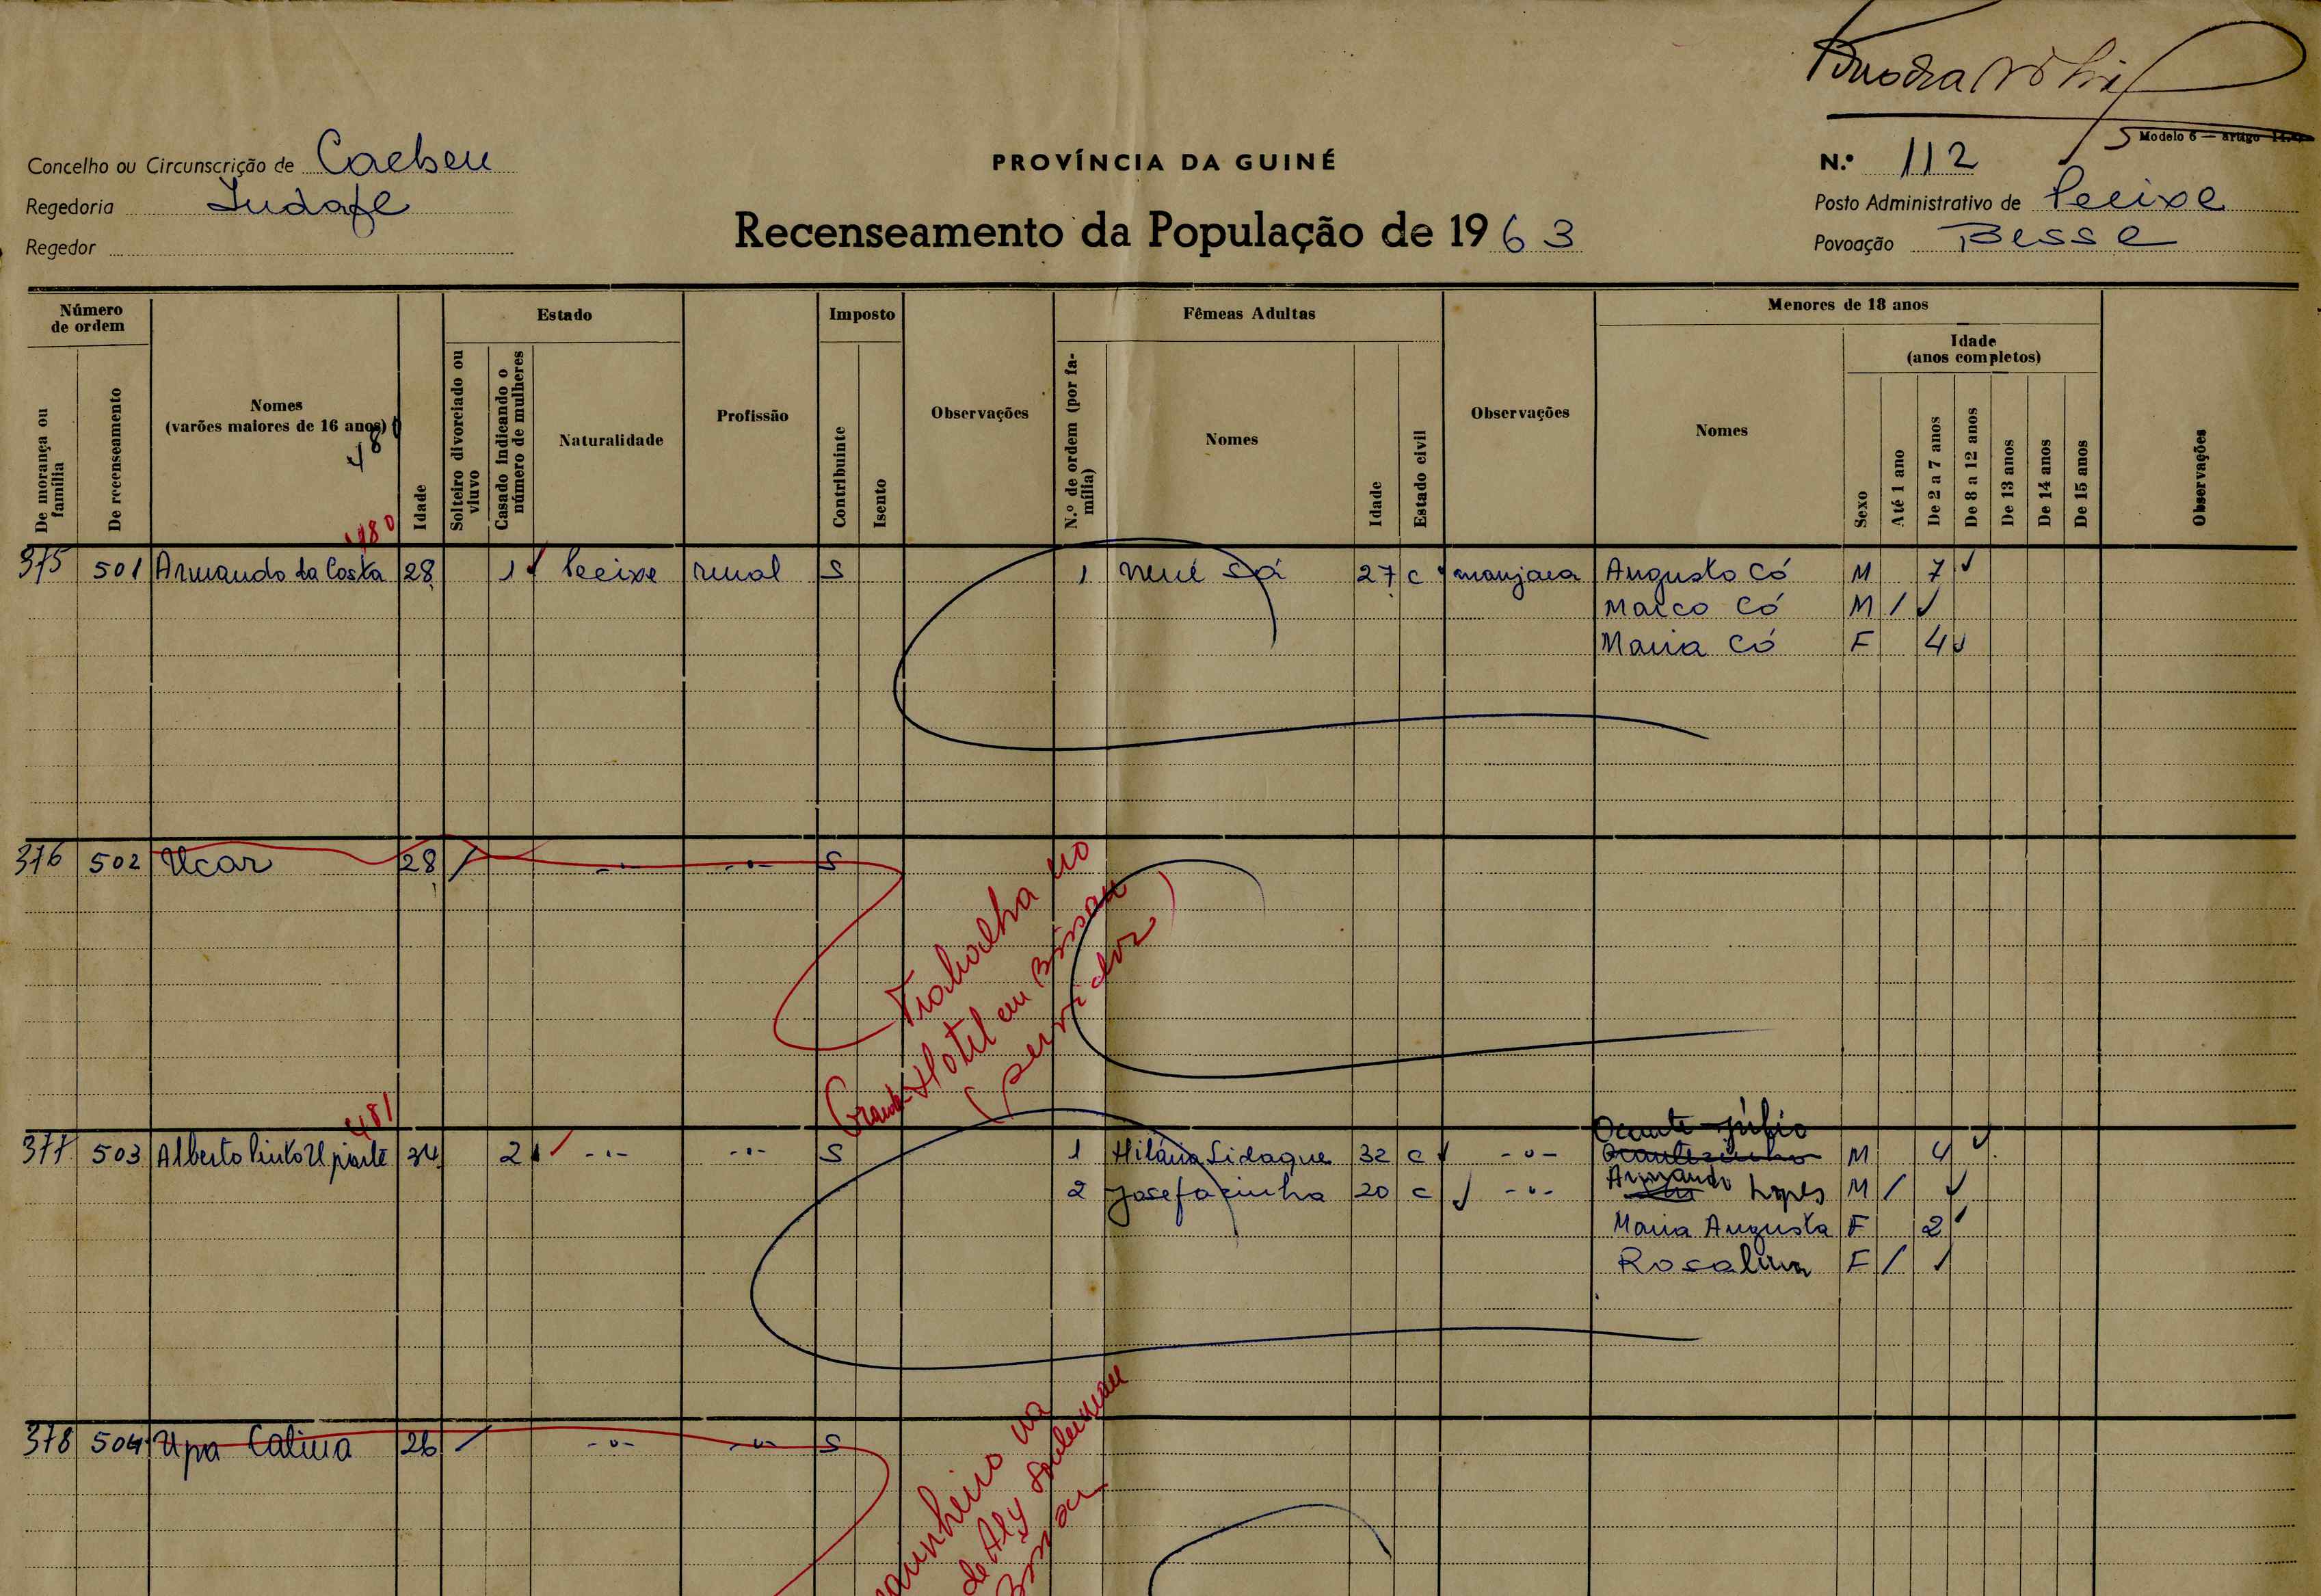 Modelo 6 — artigo
Concelho ou Circunscrição de Caebeu
PROVÍNCIA DA GUINÉ
N.º 112
Regedoria
Posto Administrativo de
Regedor
Recenseamento da População de 1963
Povoação Besse
Número de ordem
Estado
Imposto
Fêmeas Adultas
Menores de 18 anos
Idade
(anos completos)
De morança ou família
De recenseamento
Nomes
(varões maiores de 16 anos)
48
Idade
Solteiro divorciado ou viuvo
Casado indicando o número de mulheres
Naturalidade
Profissão
Contribuinte
Isento
Observações
N.º de ordem (por família)
Nomes
Idade
Estado civil
Observações
Nomes
Sexo
Até 1 ano
De 2 a 7 anos
De 8 a 12 anos
De 13 anos
De 14 anos
De 15 anos
Observações
480
375 501 Armando da Costa 28 1 rural S 1 Nené Sá 27 c manjaca Augusto Có M 7
Marco Có M /
Maria Có F 4
376 502 Ucar 28 / -"- -"- S
Trabalha no
Grande Hotel em Bissau
(servidor)
481
Ocante Júlio
377 503 Alberto Pinto Uparte 34 2 -"- -"- S 1 Hilária Sidaque 32 c -"- M 4
2 Josefazinha 20 c -"- Armando Lopes M /
Maria Augusta F 2
Rosalina F /
378 504 Upa Catiua 26 / -"- -"- S
de Aly Souleiman
Bissau